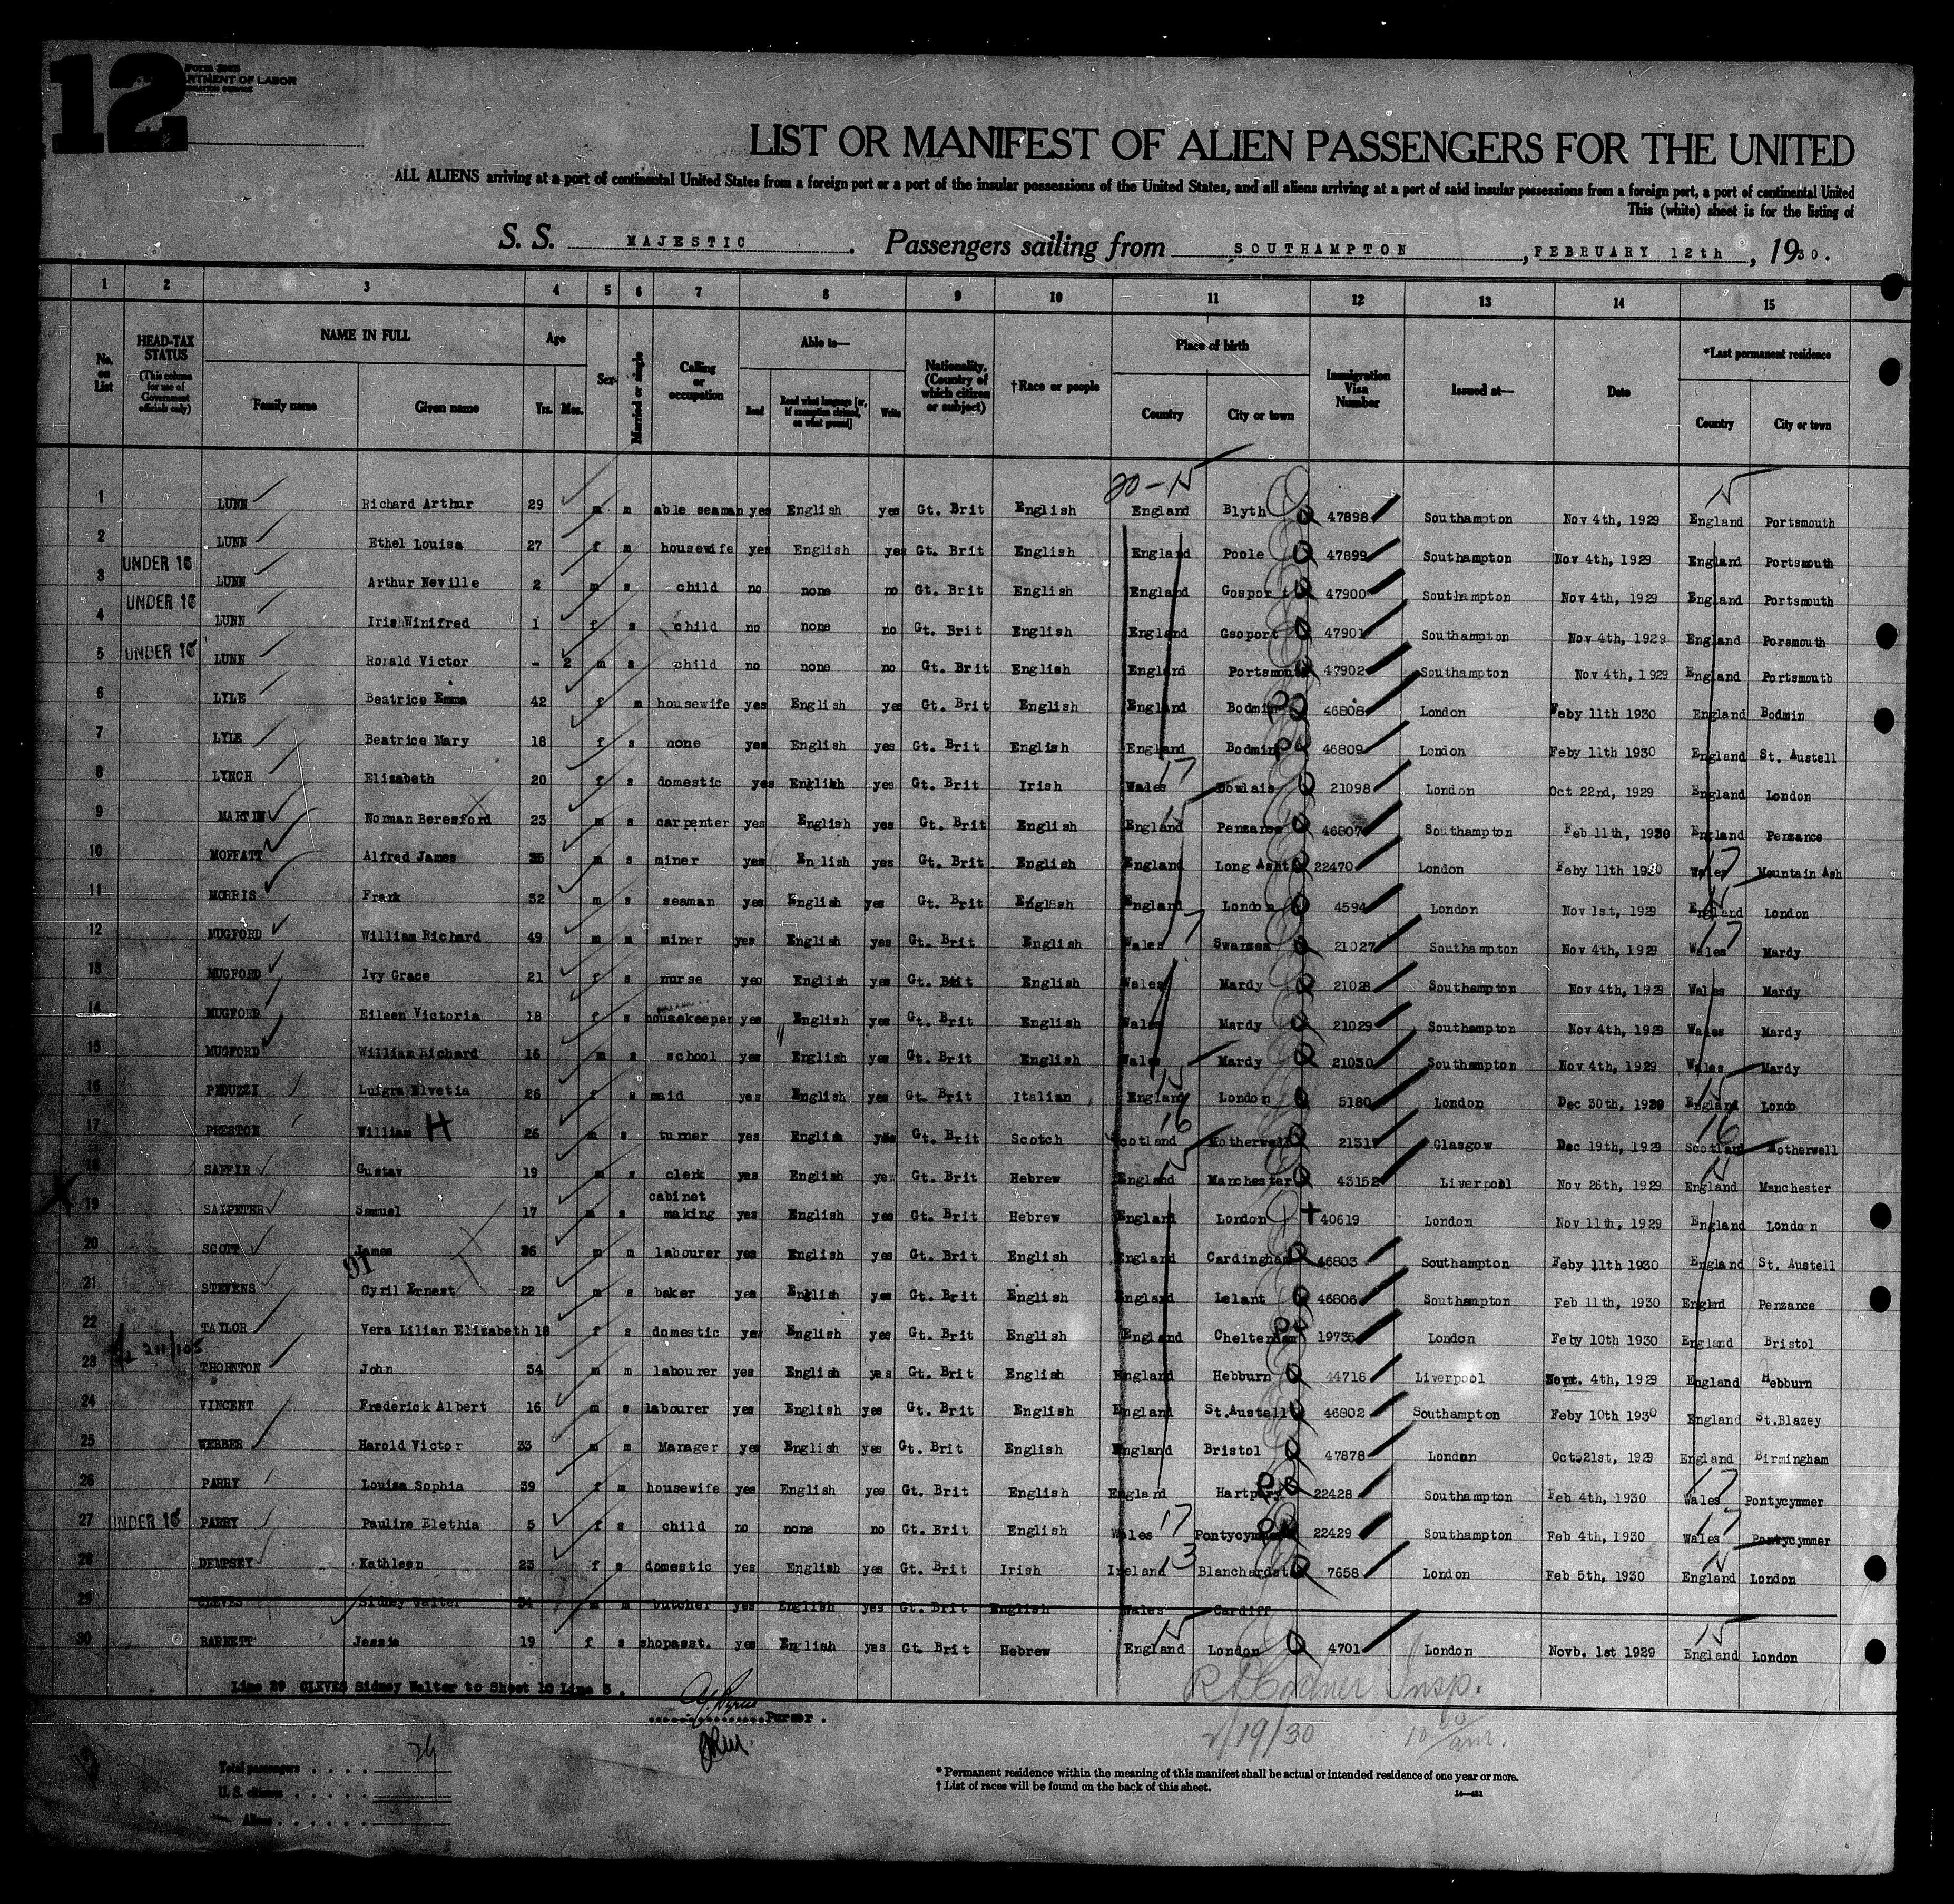 12
Form 500B
DEPARTMENT OF LABOR
LIST OR MANIFEST OF ALIEN PASSENGERS FOR THE UNITED
ALL ALIENS arriving at a port of continental United States from a foreign port or a port of the insular possessions of the United States, and all aliens arriving at a port of said insular possessions from a foreign port, a port of continental United
This (white) sheet is for the listing of
S. S. MAJESTIC. Passengers sailing from SOUTHAMPTON, FEBRUARY 12th, 1930.
1 2 3 4 5 6 7 8 9 10 11 12 13 14 15
No. on List HEAD-TAX STATUS (This column for use of Government officials only) NAME IN FULL Family name Given name Age Yrs. Mos. Sex Married or single Calling or occupation Able to— Read Read what language [or, if exemption claimed, on what ground] Write Nationality. (Country of which citizen or subject) †Race or people Place of birth Country City or town Immigration Visa Number Issued at— Date *Last permanent residence Country City or town
20-15 15
1 LUNN Richard Arthur 29 m m able seaman yes English yes Gt. Brit English England Blyth 47898 Southampton Nov 4th, 1929 England Portsmouth
2 LUNN Ethel Louisa 27 f m housewife yes English yes Gt. Brit English England Poole 47899 Southampton Nov 4th, 1929 England Portsmouth
3 UNDER 16 LUNN Arthur Neville 2 m s child no none no Gt. Brit English England Gosport 47900 Southampton Nov 4th, 1929 England Portsmouth
4 UNDER 16 LUNN Iris Winifred 1 f s child no none no Gt. Brit English England Gsoport 47901 Southampton Nov 4th, 1929 England Porsmouth
5 UNDER 16 LUNN Ronald Victor - 2 m s child no none no Gt. Brit English England Portsmouth 47902 Southampton Nov 4th, 1929 England Portsmouth
6 LYLE Beatrice Emma 42 f m housewife yes English yes Gt. Brit English England Bodmin 46808 London Feby 11th 1930 England Bodmin
7 LYLE Beatrice Mary 18 f s none yes English yes Gt. Brit English England Bodmin 46809 London Feby 11th 1930 England St. Austell
8 LYNCH Elizabeth 20 f s domestic yes English yes Gt. Brit Irish Wales 17 Dowlais 21098 London Oct 22nd, 1929 England London
9 MARTIN Norman Beresford 23 m s carpenter yes English yes Gt. Brit English England 15 Penzance 46807 Southampton Feb 11th, 1930 England Penzance
10 MOFFATT Alfred James m s miner yes English yes Gt. Brit English England Long Asht 22470 London Feby 11th 1930 Wales 17 Mountain Ash
11 MORRIS Frank 32 m s seaman yes English yes Gt. Brit English England London 4594 London Nov 1st, 1929 England 15 London
12 MUGFORD William Richard 49 m m miner yes English yes Gt. Brit English Wales 17 Swansea 21027 Southampton Nov 4th, 1929 Wales 17 Mardy
13 MUGFORD Ivy Grace 21 f s nurse yes English yes Gt. Brit English Wales Mardy 21028 Southampton Nov 4th, 1929 Wales Mardy
14 MUGFORD Eileen Victoria 18 f s housekeeper yes English yes Gt. Brit English Wales Mardy 21029 Southampton Nov 4th, 1929 Wales Mardy
15 MUGFORD William Richard 16 m s school yes English yes Gt. Brit English Wales Mardy 21030 Southampton Nov 4th, 1929 Wales Mardy
16 PEDUZZI Luigra Elvetia 26 f s maid yes English yes Gt. Brit Italian England 15 London 5180 London Dec 30th, 1929 England 15 Londo
17 PRESTON William H 26 m s turner yes English yes Gt. Brit Scotch Scotland 16 Motherwell 2151 Glasgow Dec 19th, 1929 Scotland 16 Motherwell
18 SAFFIR Gustav 19 m s clerk yes English yes Gt. Brit Hebrew England 15 Manchester 43152 Liverpool Nov 26th, 1929 England 15 Manchester
19 SALPETER Samuel 17 m s cabinet making yes English yes Gt. Brit Hebrew England London 40619 London Nov 11th, 1929 England London
20 SCOTT James m m labourer yes English yes Gt. Brit English England Cardingham 46803 Southampton Feby 11th 1930 England St. Austell
21 STEVENS Cyril Ernest 22 m s baker yes English yes Gt. Brit English England Lelant 46806 Southampton Feb 11th, 1930 Englnd Penzance
22 TAYLOR Vera Lilian Elizabeth 18 f s domestic yes English yes Gt. Brit English England Cheltenham 19735 London Feby 10th 1930 England Bristol
23 THORNTON John 34 m m labourer yes English yes Gt. Brit English England Hebburn 44718 Liverpool 4th, 1929 England Hebburn
24 VINCENT Frederick Albert 16 m s labourer yes English yes Gt. Brit English England St.Austell 46802 Southampton Feby 10th 1930 England St.Blazey
25 WEBBER Harold Victor 33 m m Manager yes English yes Gt. Brit English England Bristol 47878 London Oct 21st, 1929 England Birmingham
26 PARRY Louisa Sophia 39 f m housewife yes English yes Gt. Brit English England Hartpury 22428 Southampton Feb 4th, 1930 Wales 17 Pontycymmer
27 UNDER 16 PARRY Pauline Elethia 5 f s child no none no Gt. Brit English Wales 17 Pontycymmer 22429 Southampton Feb 4th, 1930 Wales 17 Pontycymmer
28 DEMPSEY Kathleen 23 f s domestic yes English yes Gt. Brit Irish Ireland 13 Blanchardst 7658 London Feb 5th, 1930 England 15 London
29 CLEVES Sidney Walter 34 m m butcher yes English yes Gt. Brit English Wales Cardiff
30 BARNETT Jessie 19 f s shopasst. yes English yes Gt. Brit Hebrew England 15 London 4701 London Novb. 1st 1929 England 15 London
Line 29 CLEVES Sidney Walter to Sheet 10 Line 3.
Purser.
Insp.
2/19/30 10 am.
Total passengers 29
U. S. citizens
Aliens
* Permanent residence within the meaning of this manifest shall be actual or intended residence of one year or more.
† List of races will be found on the back of this sheet.